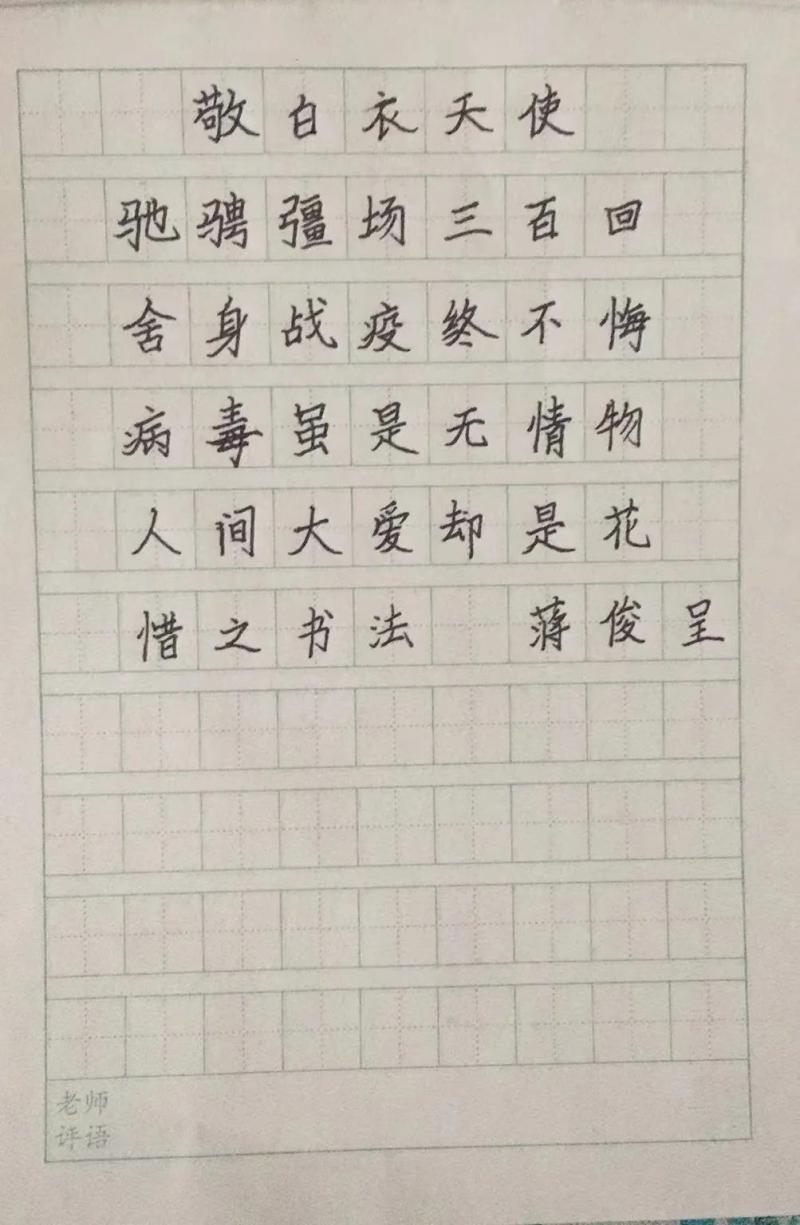 敬白衣天使
驰骋彊场三百回
舍身战疫终不悔
病毒虽是无情物
人间大爱却是花
惜之书法 薄俊呈
老师
评语